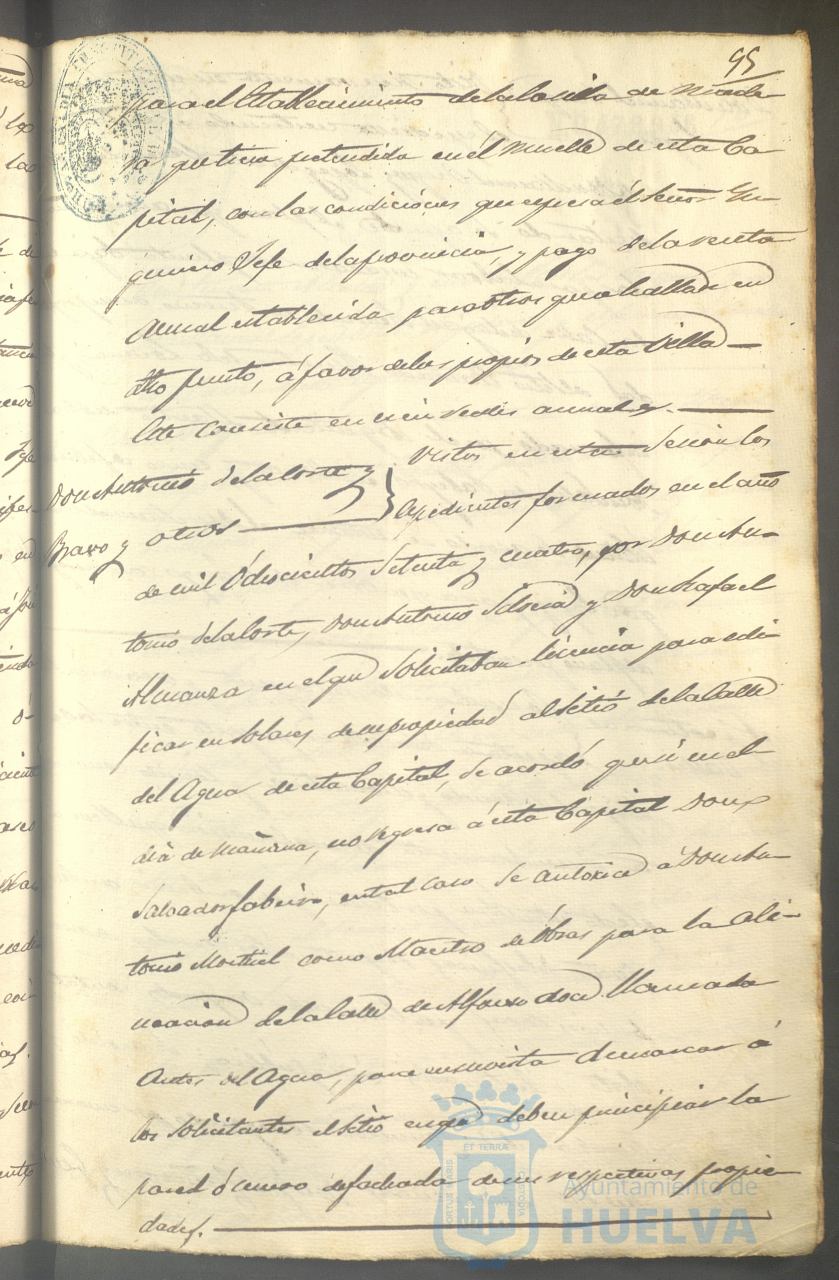 95
para el establecimiento de la casilla de made-
ra que tiene pretendida en el muelle de esta Ca-
pital, con las condiciones que espresa el Señor Yn-
geniero Jefe de la provincia, y pago de la renta
anual establecida para otros que se hallan en
dho punto, á favor de los propios de esta Villa —
Este consiste en cien reales anuales. —
Don Antonio de la Corte y
Bravo y otros —
Vistos en esta Sesion los
espedientes formados en el año
de mil ochocientos setenta y cuatro, por Don An-
tonio de la Corte, Don Antonio y Don Rafael
Almanza en el que solicitaban licencia para edi-
ficar en solares de su propiedad al sitio de la Calle
del Agua de esta Capital, se acordó que si en el
dia de mañana, no regresa á esta Capital Don
Salvador, en tal caso se autorice á Don An-
tonio Montiel como Maestro de Obras para la ali-
neacion de la Calle de Alfonso doce llamada
Antes del Agua, para en su vista demarcar á
los solicitantes el sitio en que deben principiar la
pared ó muro de fachada de sus respectivas propie-
dades. —
Ayuntamiento de
HUELVA
PORTUS MARIS
ET TERRÆ
CUSTODIA